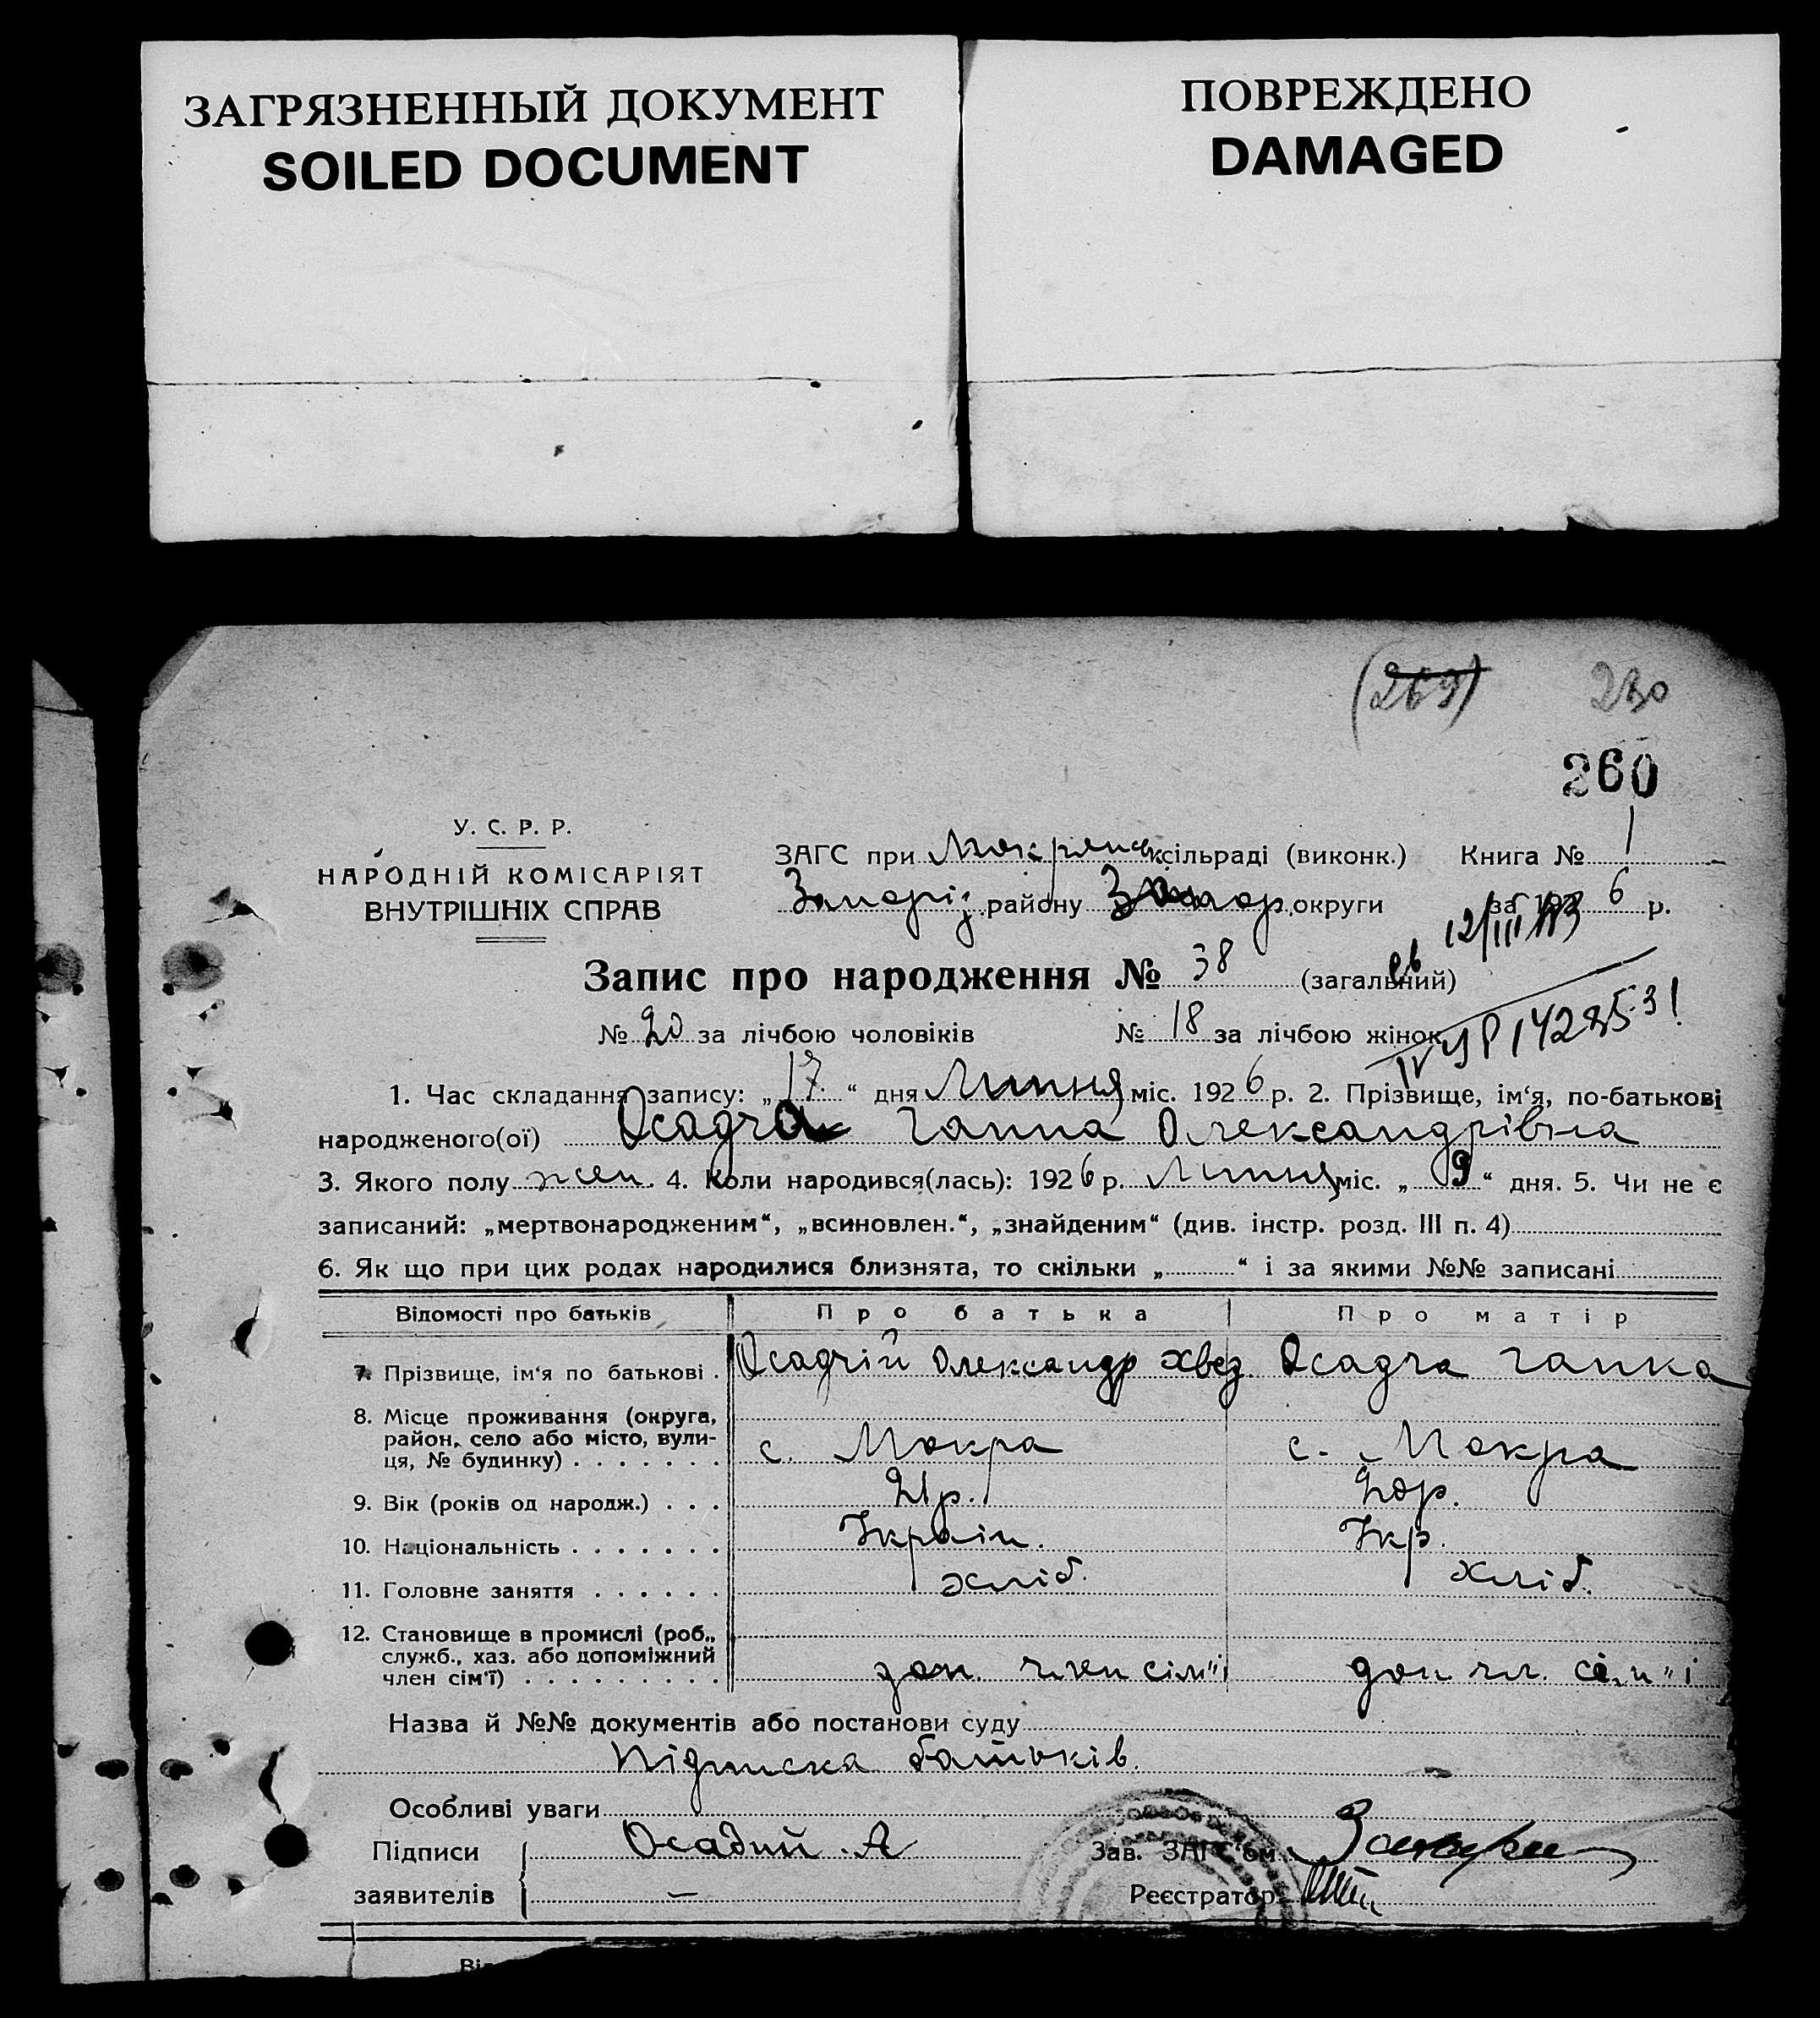 ЗАГРЯЗНЕННЫЙ ДОКУМЕНТ
SOILED DOCUMENT
ПОВРЕЖДЕНО
DAMAGED
(269) 230
260
У. С. Р. Р.
НАРОДНІЙ КОМІСАРІЯТ
ВНУТРІШНІХ СПРАВ
ЗАГС при Мокрянськ сільраді (виконк.) Книга № 1
Запоріз району Запор. округи за 192 6 р.
12/III
Запис про народження № 38 (загальний)
№ 20 за лічбою чоловіків № 18 за лічбою жінок
1. Час складання запису: „17“ дня Липня міс. 1926 р. 2. Прізвище, ім‘я, по-батькові
народженого(ої) Осадча Ганна Олександрівна
3. Якого полу жен. 4. Коли народився(лась): 1926 р. Липня міс. „9“ дня. 5. Чи не є
записаний: „мертвонародженим“, „всиновлен.“, „знайденим“ (див. інстр. розд. III п. 4)
6. Як що при цих родах народилися близнята, то скільки „ “ і за якими №№ записані
Відомості про батьків Про батька Про матір
7. Прізвище, ім‘я по батькові . Осадчій Олександр Хвед. Осадча Ганка
8. Місце проживання (округа,
район, село або місто, вули-
ця, № будинку) . . . . . . . с. Мокра с. Мокра
9. Вік (років од народж.) . . . 21 р. 20 р.
10. Національність . . . . . . . Україн. Укр.
11. Головне заняття . . . . . . хліб. хліб.
12. Становище в промислі (роб.,
служб., хаз. або допоміжний
член сім‘ї) . . . . . . . . . доп. член сім"ї доп чл. сім"ї
Назва й №№ документів або постанови суду
Підписка батьків.
Особливі уваги
Підписи Осадчий . А Зав. ЗАГС‘ом
заявителів — Реєстратор